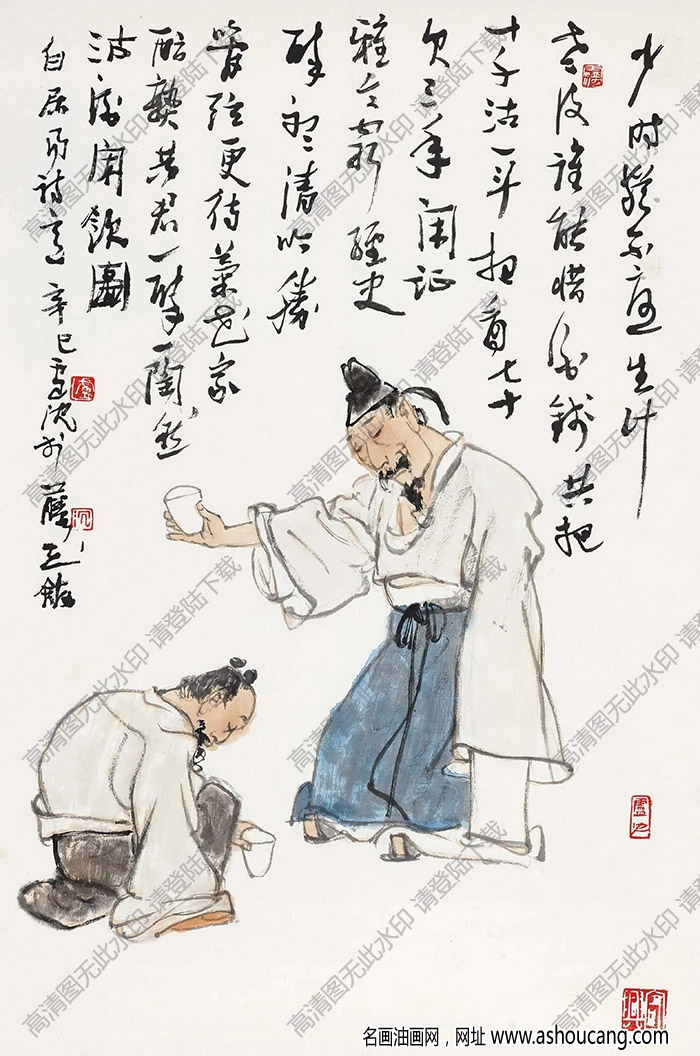 少时犹不忧生计
老后谁能惜酒钱共把
十千沽一斗相看七十
欠三年闲证
雅令穷经史
醉听清吟胜
管弦更待菊黄家
酝熟共君一醉一陶然
沽酒闲饮图
白居易诗意辛巳
高清图无此水印 请登陆下载
名画油画网，网址 www.ashoucang.com